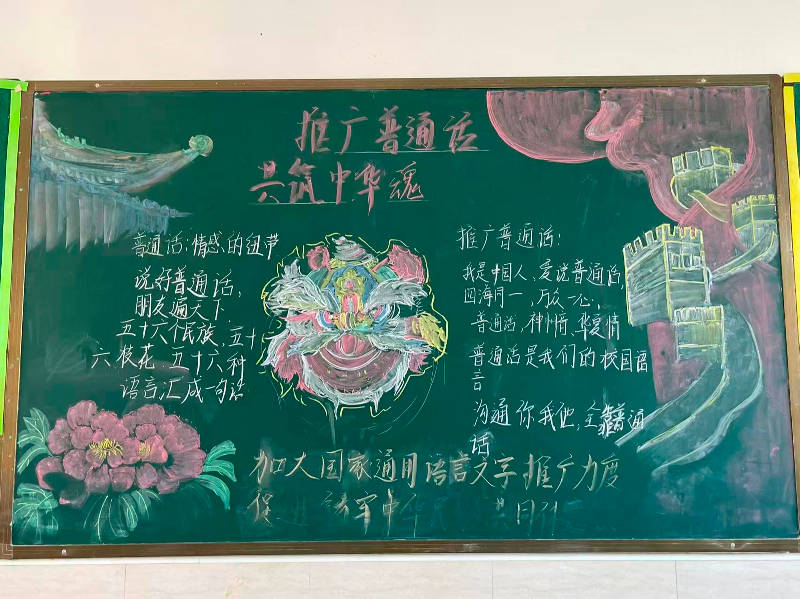 推广普通话
共筑中华魂
普通话:情感的纽带
说好普通话,
朋友遍天下
五十六个民族,五十
六枝花,五十六种
语言汇成一句话
推广普通话:
我是中国人,爱说普通话,
四海同一,万众一心,
普通话,神州情,华夏情
普通话是我们的校园语
言
沟通你我他,全靠普通
话
加大国家通用语言文字推广力度
促 中华 共同